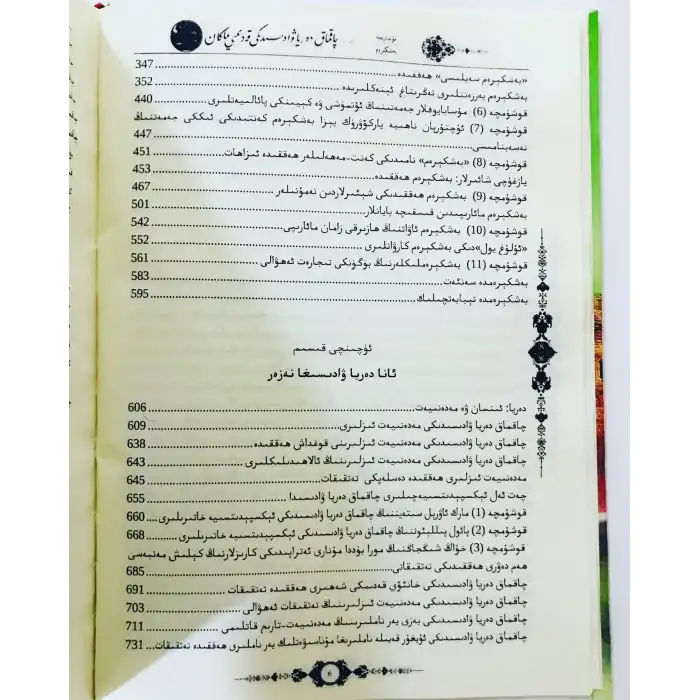 چاقماق دەرياۋادىسىدىكى قەدىمىي ماكان
«بەشكېرەم سەيلىسى» ھەققىدە 347
بەشكېرەم بەرزەنتلىرى تەڭرىتاغ ئېتەكلىرىدە 352
قوشۇمچە (6) مۇسابايوفلار جەمەتىنىڭ ئۆتمۈشى ۋە كېيىنكى پائالىيەتلىرى 440
قوشۇمچە (7) ئۈچتۇرپان ناھىيە ياركۆۋرۈك يېزا بەشكېرەم كەنتىدىكى ئىككى جەمەتنىڭ
نەسەبنامىسى 447
قوشۇمچە (8) «بەشكېرەم» نامىدىكى كەنت-مەھەللىلەر ھەققىدە ئىزاھات 451
يازغۇچى شائىرلار: بەشكېرەم ھەققىدە 453
قوشۇمچە (9) بەشكېرەم ھەققىدىكى شېئىرلاردىن نەمۇنىلەر 467
بەشكېرەم مائارىپىدىن قىسقىچە بايانلار 501
قوشۇمچە (10) بەشكېرەم ئاۋاتنىڭ ھازىرقى زامان مائارىپى 542
«ئۇلۇغ يول»دىكى بەشكېرەم كارۋانلىرى 552
قوشۇمچە (11) بەشكېرەملىكلەرنىڭ بۈگۈنكى تىجارەت ئەھۋالى 561
بەشكېرەمدە سەنئەت 583
بەشكېرەمدە تېبابەتچىلىك 595
ئۈچىنچى قىسىم
ئانا دەريا ۋادىسىغا نەزەر
دەريا: ئىنسان ۋە مەدەنىيەت 606
چاقماق دەريا ۋادىسىدىكى مەدەنىيەت ئىزلىرى 609
چاقماق دەريا ۋادىسىدىكى مەدەنىيەت ئىزلىرىنى قوغداش ھەققىدە 638
چاقماق دەريا ۋادىسىدىكى مەدەنىيەت ئىزلىرىنىڭ ئالاھىدىلىكلىرى 643
مەدەنىيەت ئىزلىرى ھەققىدە دەسلەپكى تەتقىقات 645
چەت ئەل ئېكسپېدىتسىيەچىلىرى چاقماق دەريا ۋادىسىدا 655
قوشۇمچە (1) مارك ئاۋرېل ستەيىننىڭ چاقماق دەريا ۋادىسىدىكى ئېكسپېدىتسىيە خاتىرىلىرى 660
قوشۇمچە (2) پائول پىللىئوتنىڭ چاقماق دەريا ۋادىسىدىكى ئېكسپېدىتسىيە خاتىرىلىرى 668
قوشۇمچە (3) خۇاڭ شىڭجاڭنىڭ مورا بۇددا مۇنارى ئەتراپىدىكى كارىزلارنىڭ كېلىش مەنبەسى
ھەم دەۋرى ھەققىدىكى تەتقىقاتى 685
چاقماق دەريا ۋادىسىدىكى خانئۆي قەدىمكى شەھىرى ھەققىدە تەتقىقات 691
چاقماق دەريا ۋادىسىدىكى مەدەنىيەت ئىزلىرىنىڭ تەتقىقات ئەھۋالى 703
چاقماق دەريا ۋادىسىدىكى بەزى يەر ناملىرىنىڭ مەدەنىيەت-تارىم قاتلىمى 711
چاقماق دەريا ۋادىسىدىكى ئۇيغۇر قەبىلە ناملىرىغا مۇناسىۋەتلىك يەر ناملىرى ھەققىدە تەتقىقات 731
6